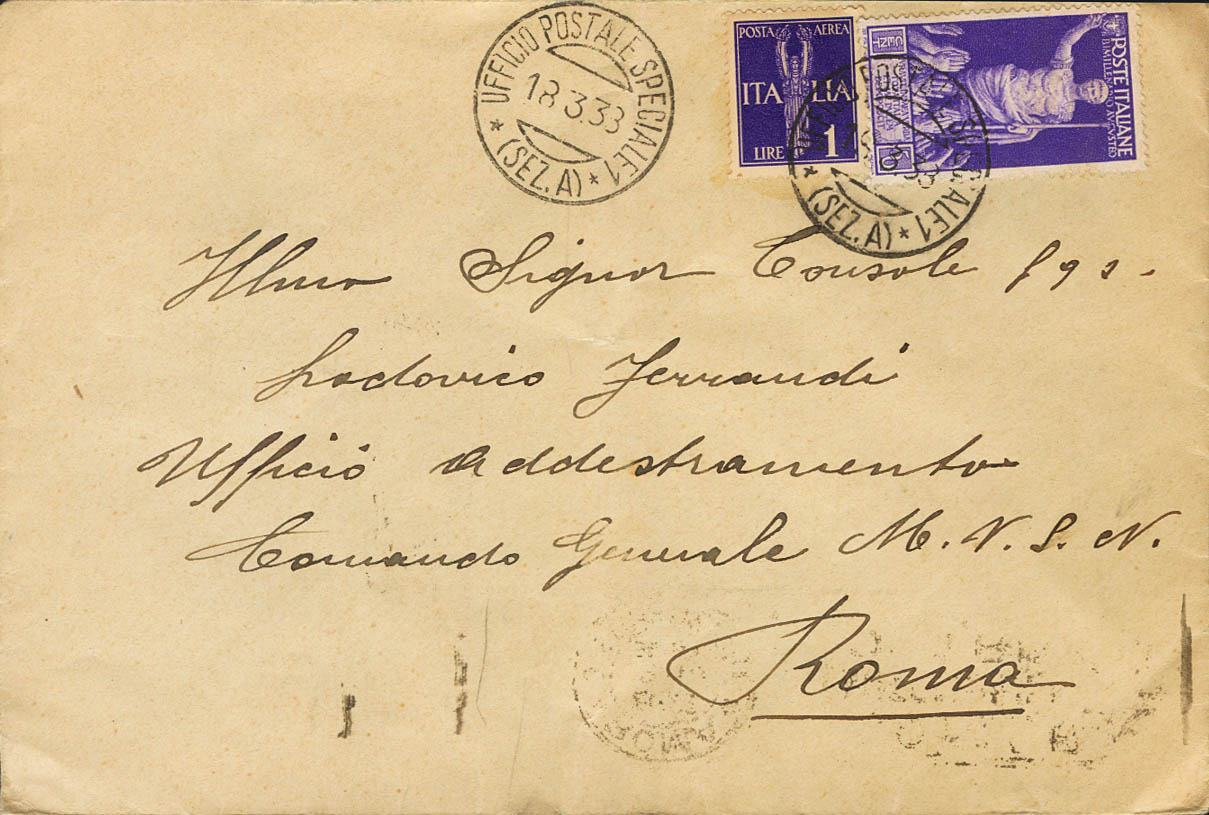 UFFICIO POSTALE SPECIALE 1
18.3.33
* (SEZ. A) *
POSTA AEREA
ITALIA
LIRE 1
POSTE ITALIANE
BIMILLENARIO AVGVSTEO
CENT
50
UFFICIO POSTALE SPECIALE 1
18.3.33
* (SEZ. A) *
Illmo Signor Console
Lodovico Ferrandi
Ufficio Addestramento
Comando Generale M. V. S. N.
Roma